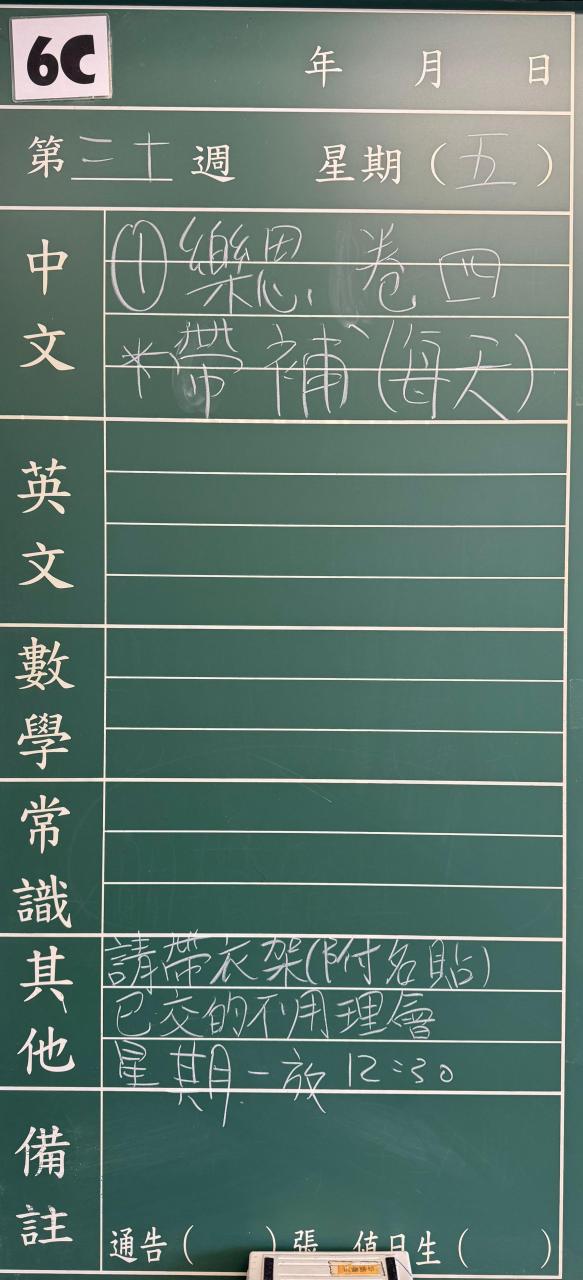 6C
年 月 日
第 三十 週 星期（五）
中文
① 樂思 卷四
*帶補（每天）
英文
數學
常識
其他
請帶衣架(附名貼)
已交的不用理會
星期一放12:30
備註
通告（ ）張 值日生（ ）